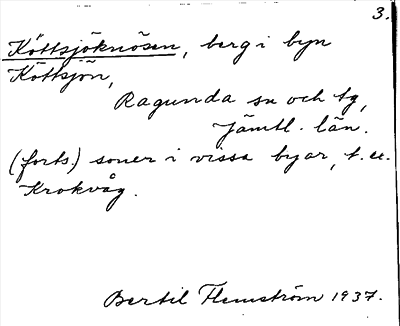 3.
Köttsjöknösen, berg i byn
Köttsjön,
Ragunda sn och tg,
Jämtl. län.
(forts.) soner i vissa byar, t. ex.
Krokvåg.
Bertil Flemström 1937.